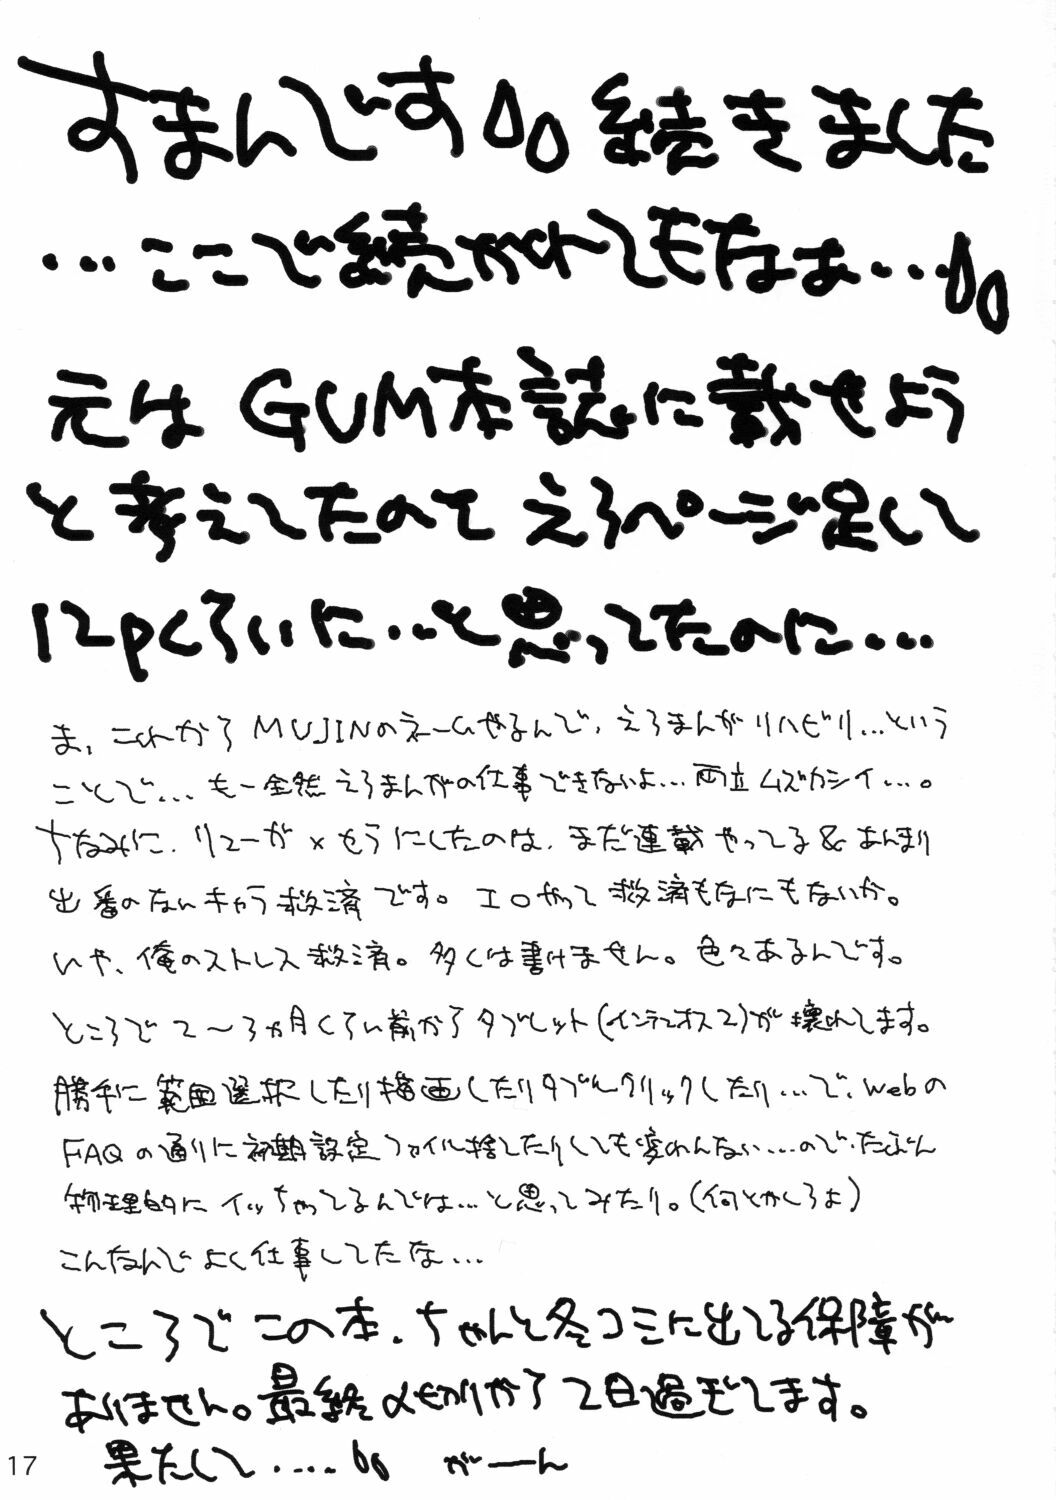 すまんです 続きました
…ここで続かれてもなぁ…
元はGUM本誌に載せよう
と考えてたので えろページ足して
12pくらいに…と思ってたのに…
ま、これからMUJINのネームやるんで、えろまんがリハビリ…という
ことで… もー全然えろまんがの仕事できないよ…両立ムズカシイ…。
ちなみに、リューが×せらにしたのは、まだ連載やってる&あんまり
出番のないキャラ救済です。エロやって救済もなにもないか。
いや、俺のストレス救済。多くは書けません。色々あるんです。
ところで2〜3ヵ月くらい前からタブレット(インテュオス2)が壊れてます。
勝手に範囲選択したり描画したりダブルクリックしたり…で、webの
FAQの通りに初期設定ファイル捨てたりしても変わんない…ので、たぶん
物理的にイッちゃってるんでは…と思ってみたり。(何とかしろよ)
こんなんでよく仕事してたな…
ところでこの本、ちゃんと冬コミに出てる保障が
ありません。最終〆切りから2日過ぎてます。
果たして…… がーーん
17